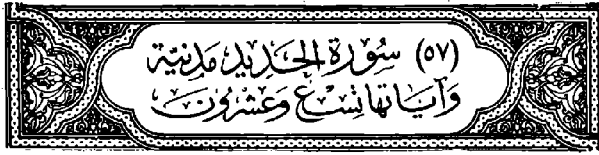 (٥٧) سُورَة الحَدِيد مَدنيَّة
وَآيَاتهَا تِسْعٌ وَعشْرُونَ